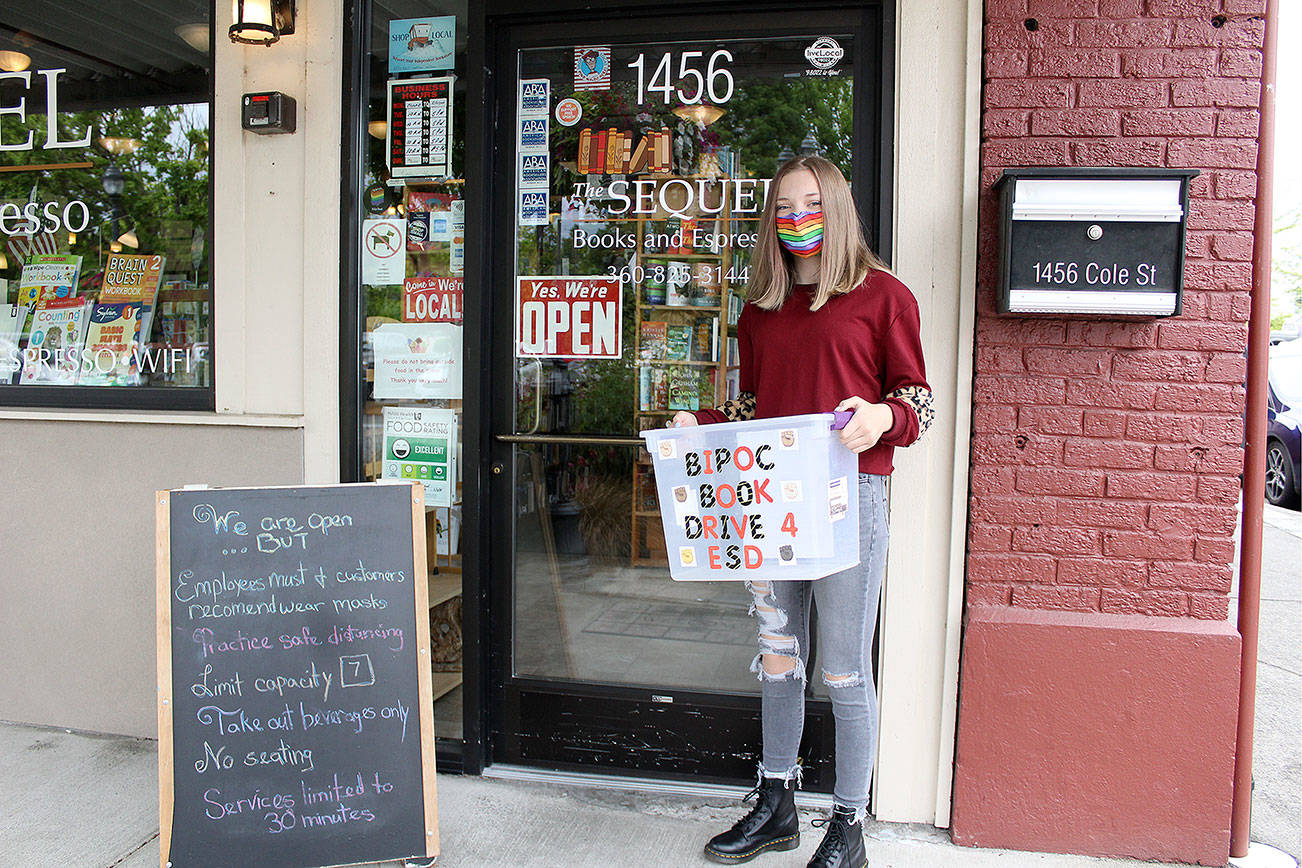 EL
esso
ESPRESSO WIFI
BRAIN
QUEST
WORKBOOK
Workbook
Counting
SHOP
BUSINESS
HOURS
Come in WE'RE
LOCAL
Please do not bring outside
food in the
Thank you very much!
FOOD SAFETY
RATING
EXCELLENT
ABA
ABA
ABA
ABA
1456
liveLocal
98022
The SEQUEL
Books and Espres
360-825-3144
Yes, We're
OPEN
1456 Cole St
BIPOC
BOOK
DRIVE 4
ESD
We are open
... BUT
Employees must & customers
recomend wear masks
Practice safe distancing
Limit capacity 7
Take out beverages only
No seating
Services limited to
30 minutes